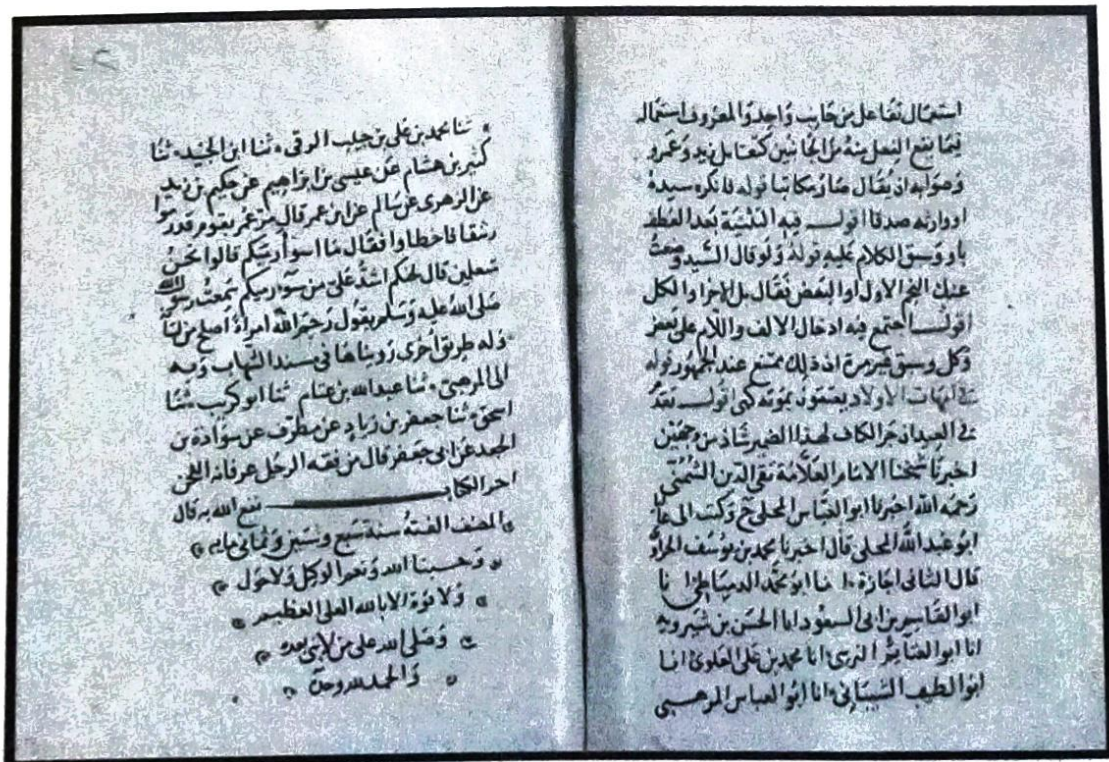 استعمال تفاعل من جانب واحد والمعروف استعماله
فيما يقع الفعل منه من الجانبين كتقابل زيد وعمرو
وصوابه ان يقال صار مكاتبا قوله فانكره سيده
او وارثه صدقا اقول فيه التثنية بعد العطف
باو وسبق الكلام عليه قوله ولو قال السيد وضعت
عنك النجم الاول او البعض فقال بل الاخر او الكل
اقول اجتمع فيه ادخال الالف واللام على بعض
وكل وسبق غير مرة ان ذلك ممتنع عند الجمهور قوله
في امهات الاولاد بموته كهى اقول تقدم
في العيد ان جر الكاف لهذا الضمير شاذ من وجهين
اخبرنا شيخنا الامام العلامة تقي الدين الشمني
رحمه الله اخبرنا ابو العباس المحلى ح وكتب الى عاليا
ابو عبد الله المحلى قال اخبرنا محمد بن يوسف الحرانى
قال الثانى اجازة انا ابو محمد الدمياطى انا
ابو القاسم بن ابى السعود انا الحسن بن شيرويه
انا ابو الغنائم النرسى انا محمد بن على العلوى انا
ابو الطيب الشيبانى انا ابو العباس المرهبى
ثنا محمد بن على بن حبيب الرقى ثنا ابن الجنيد ثنا
كثير بن هشام عن عيسى بن ابراهيم عن حكيم بن زيد
عن الزهرى عن سالم عن ابن عمر قال مر عمر بقوم قد رموا
رشقا فاخطاوا فقال ما اسوأ رميكم قالوا نحن
متعلمين قال لحنكم اشد على من سوء رميكم سمعت رسول الله
صلى الله عليه وسلم يقول رحم الله امراء اصلح من لسانه
وله طريق اخرى رويناها في مسند الشهاب وبه
الى المرهبى ثنا عبد الله بن غنام ثنا ابو كريب ثنا
اسحق ثنا جعفر بن زياد عن مطرف عن سوادة بن
الجعد عن ابى جعفر قال من فقه الرجل عرفانه اللحن
اخر الكتاب نفع الله به قال
المصنف الفته سنة سبع وستين وثمانى مايه
وحسبنا الله ونعم الوكيل ولا حول
ولا قوة الا بالله العلى العظيم
وصلى الله على من لا نبى بعده
والحمد لله وحده